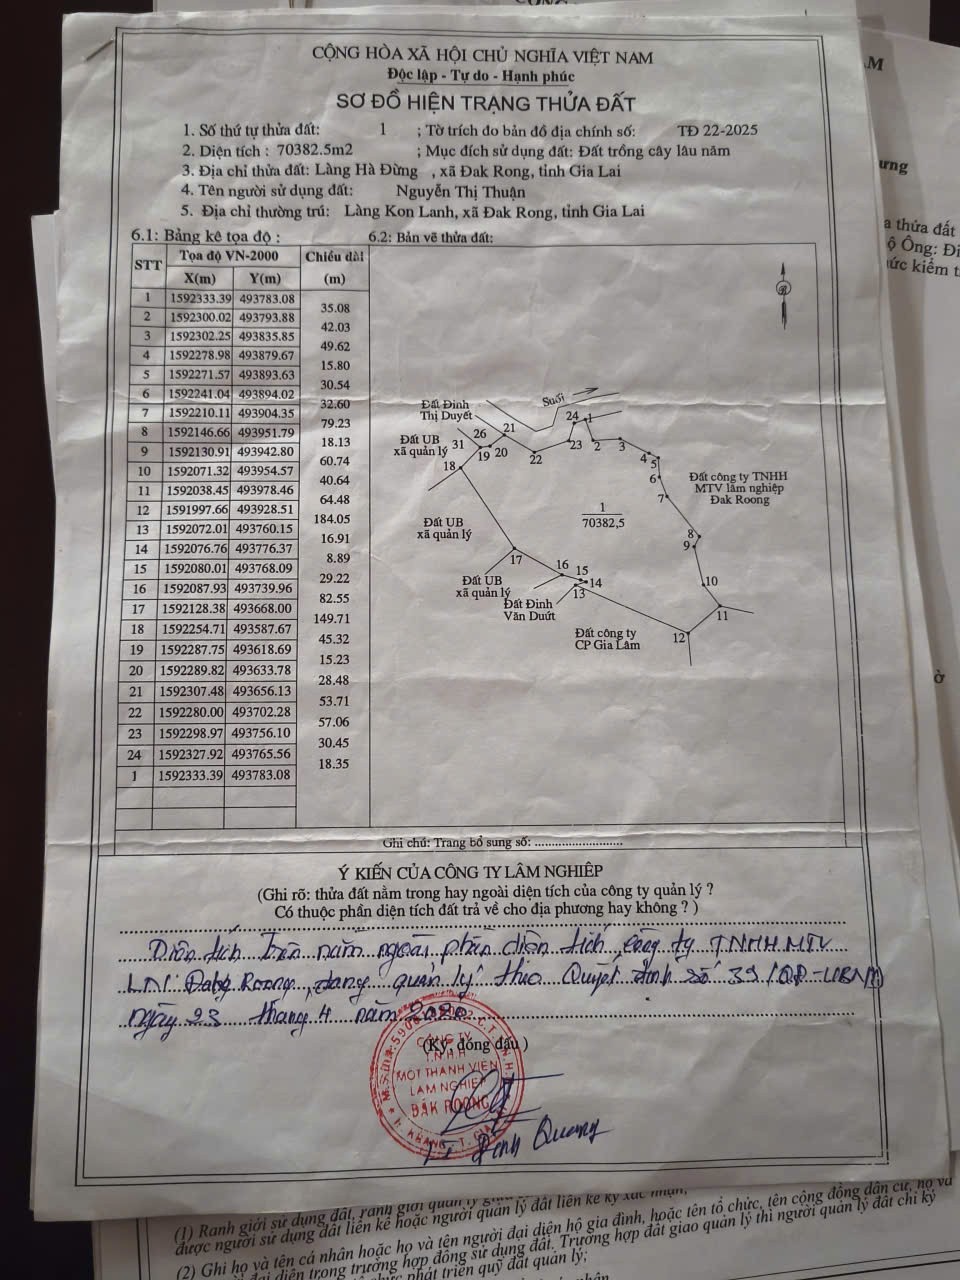 CỘNG HÒA XÃ HỘI CHỦ NGHĨA VIỆT NAM
Độc lập - Tự do - Hạnh phúc
SƠ ĐỒ HIỆN TRẠNG THỬA ĐẤT
1. Số thứ tự thửa đất: 1 ; Tờ trích đo bản đồ địa chính số: TĐ 22-2025
2. Diện tích : 70382.5m2 ; Mục đích sử dụng đất: Đất trồng cây lâu năm
3. Địa chỉ thửa đất: Làng Hà Đừng , xã Đak Rong, tỉnh Gia Lai
4. Tên người sử dụng đất: Nguyễn Thị Thuận
5. Địa chỉ thường trú: Làng Kon Lanh, xã Đak Rong, tỉnh Gia Lai
6.1: Bảng kê tọa độ : 6.2: Bản vẽ thửa đất:
STT Tọa độ VN-2000 Chiều dài
X(m) Y(m) (m)
1 1592333.39 493783.08
35.08
2 1592300.02 493793.88
42.03
3 1592302.25 493835.85
49.62
4 1592278.98 493879.67
15.80
5 1592271.57 493893.63
30.54
6 1592241.04 493894.02
32.60
7 1592210.11 493904.35
79.23
8 1592146.66 493951.79
18.13
9 1592130.91 493942.80
60.74
10 1592071.32 493954.57
40.64
11 1592038.45 493978.46
64.48
12 1591997.66 493928.51
184.05
13 1592072.01 493760.15
16.91
14 1592076.76 493776.37
8.89
15 1592080.01 493768.09
29.22
16 1592087.93 493739.96
82.55
17 1592128.38 493668.00
149.71
18 1592254.71 493587.67
45.32
19 1592287.75 493618.69
15.23
20 1592289.82 493633.78
28.48
21 1592307.48 493656.13
53.71
22 1592280.00 493702.28
57.06
23 1592298.97 493756.10
30.45
24 1592327.92 493765.56
18.35
1 1592333.39 493783.08
Suối
Đất Đinh
Thị Duyệt
24 1
26 21
Đất UB
xã quản lý
31 19 20 22 23 2 3
18 4 5
6
7
Đất công ty TNHH
MTV lâm nghiệp
Đak Roong
1
70382,5
Đất UB
xã quản lý
8
9
17
16 15 14
13
10
Đất UB
xã quản lý
Đất Đinh
Văn Duứt
11
12
Đất công ty
CP Gia Lâm
Ghi chú: Trang bổ sung số: ............................
Ý KIẾN CỦA CÔNG TY LÂM NGHIỆP
(Ghi rõ: thửa đất nằm trong hay ngoài diện tích của công ty quản lý ?
Có thuộc phần diện tích đất trả về cho địa phương hay không ? )
Diện tích trên nằm ngoài phần diện tích công ty TNHH MTV
LN Đak Roong đang quản lý theo Quyết định số 39/QĐ-UBND
ngày 23 tháng 4 năm 2020
(Ký, đóng dấu )
CÔNG TY
T.N.H.H
MỘT THÀNH VIÊN
LÂM NGHIỆP
ĐĂK ROONG
Đinh Quang
ưng
a thửa đất
ộ Ông: Đi
ức kiểm t
(1) Ranh giới sử dụng đất, ranh giới quản lý
được người sử dụng đất liền kề hoặc người quản lý đất liền kề ký xác nhận;
(2) Ghi họ và tên cá nhân hoặc họ và tên người đại diện hộ gia đình, hoặc tên tổ chức, tên cộng đồng dân cư, họ và
đại diện trong trường hợp đồng sử dụng đất. Trường hợp đất giao quản lý thì người quản lý đất chỉ ký
phát triển quỹ đất quản lý;